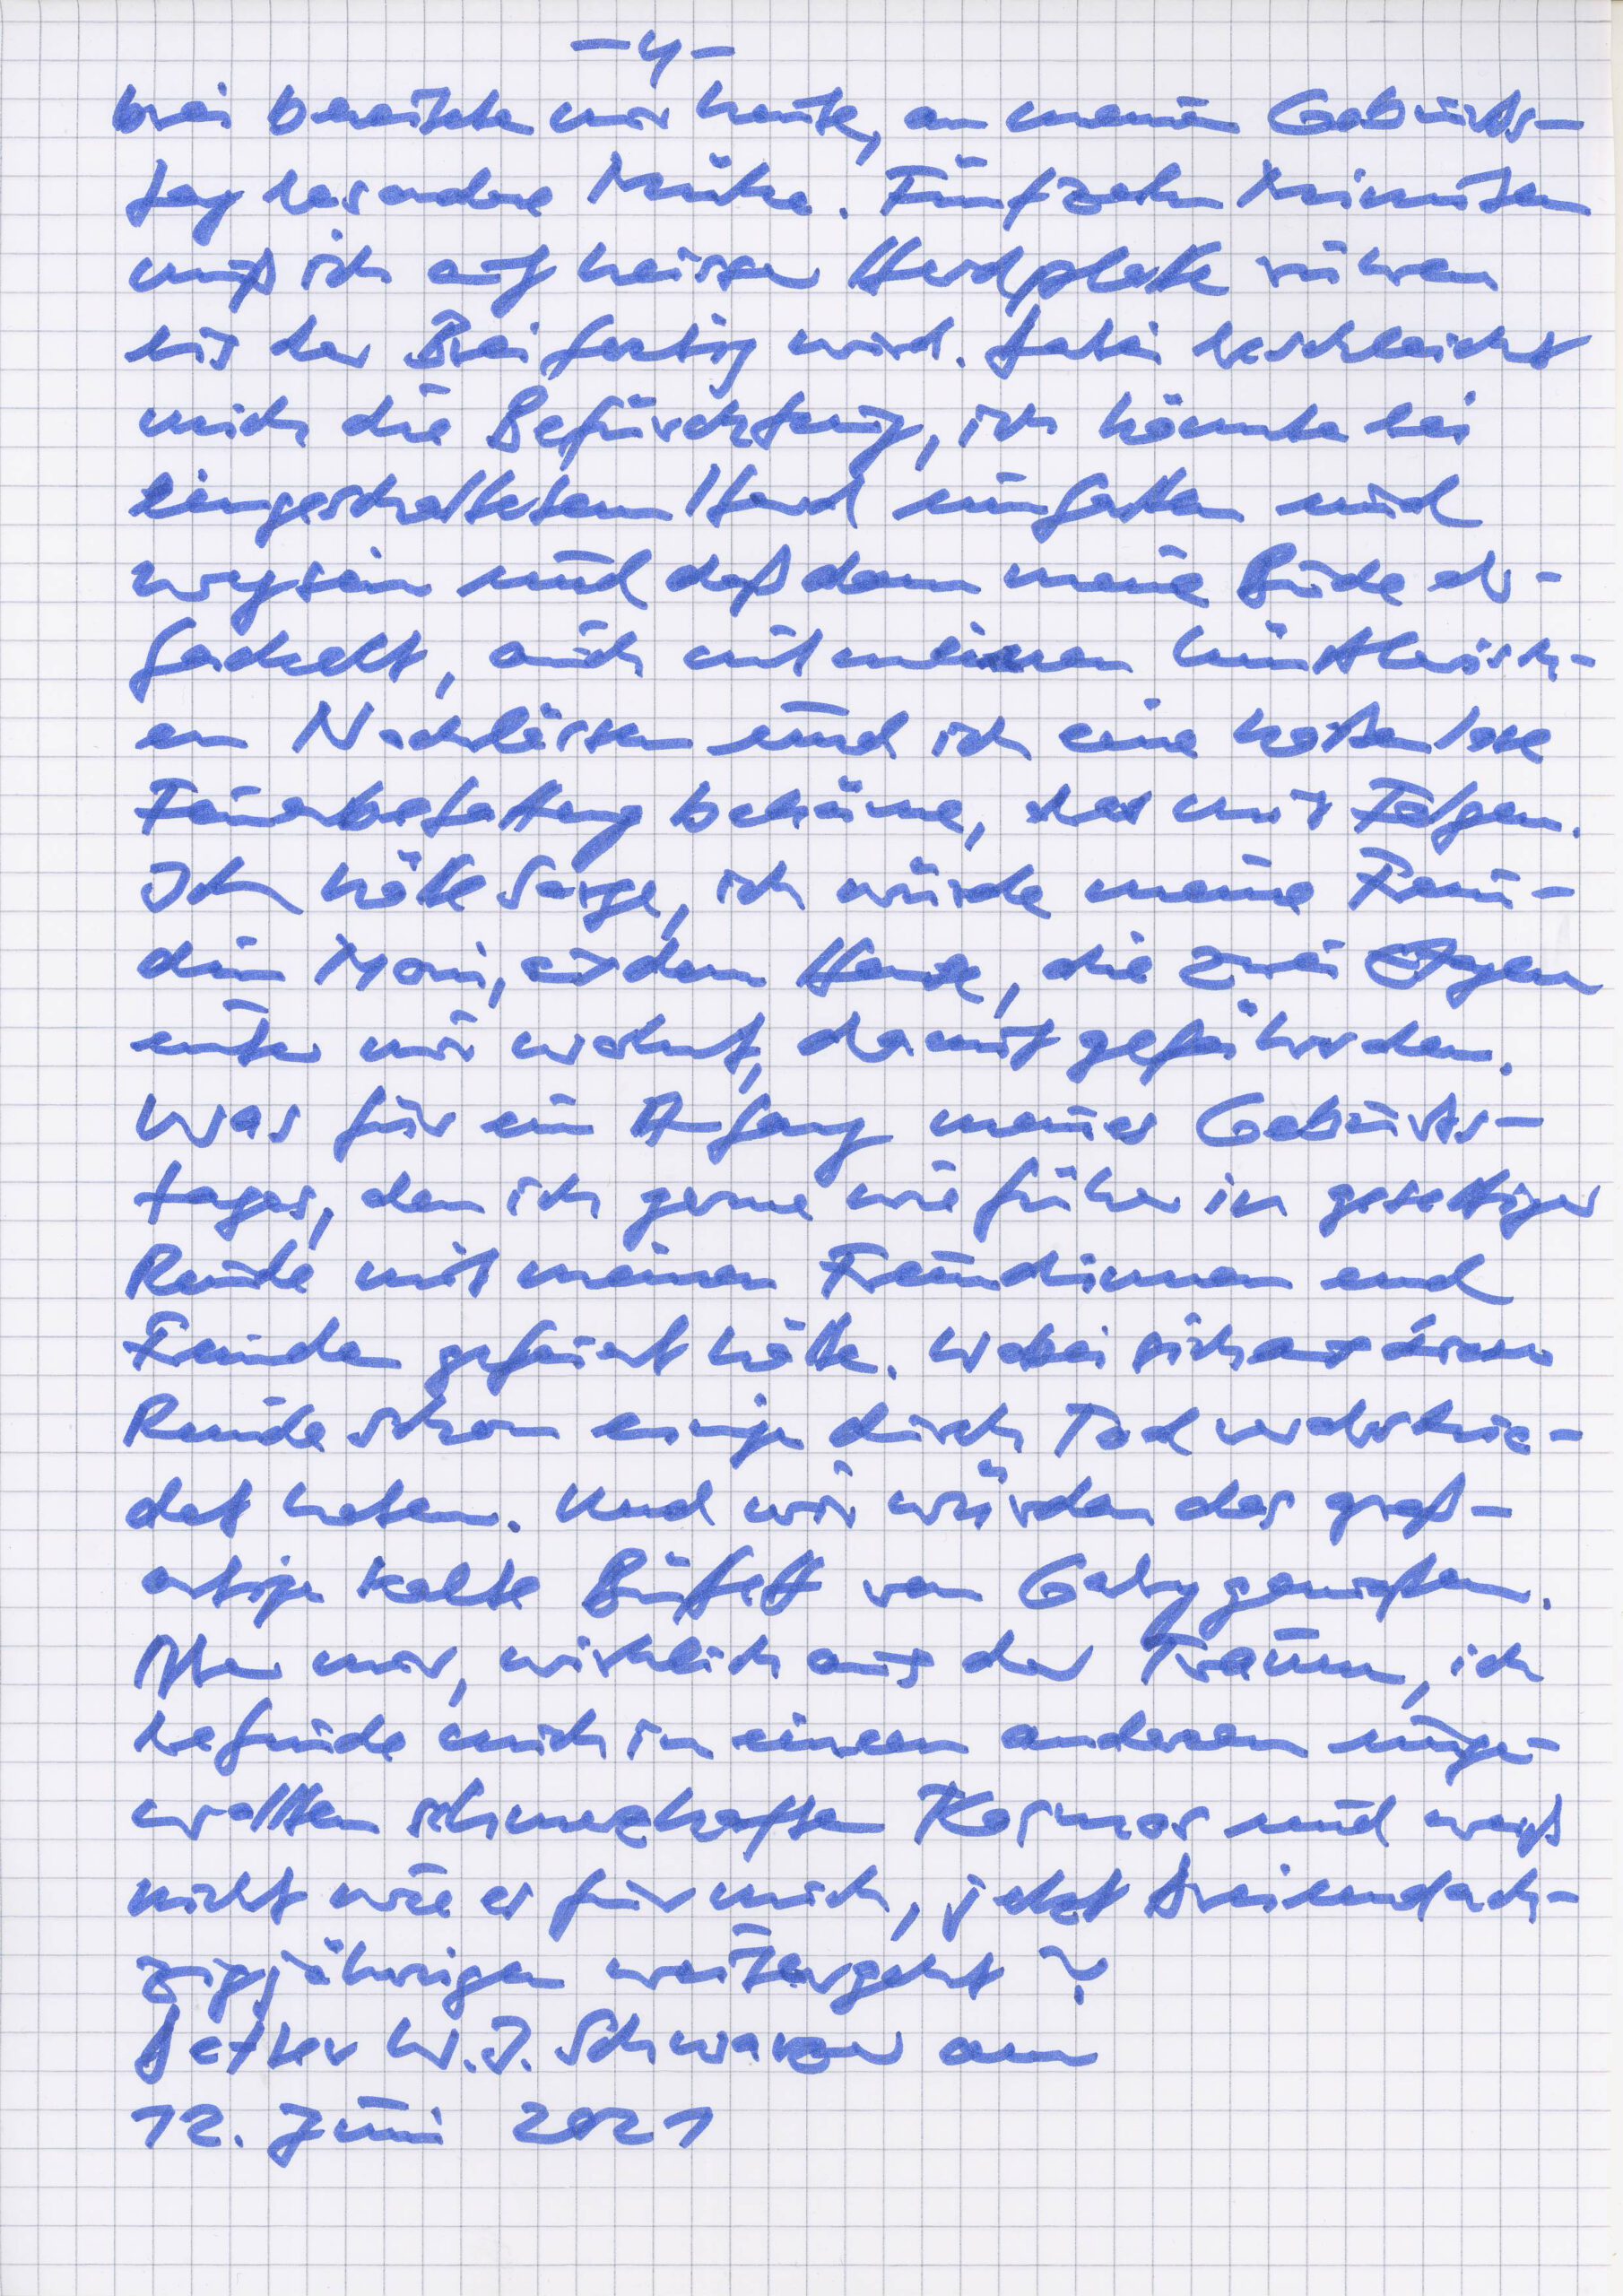 -4-
brei bereitete mir heute, an meinem Geburts-
tag besondere Mühe. Fünfzehn Minuten
muß ich auf heisser Herdplatte rühren
bis der Brei fertig wird. Dabei beschleicht
mich die Befürchtung, ich könnte bei
eingeschaltetem Herd umfallen und
wegsein und daß dann meine Bude ab-
fackelt, auch mit meinen künstlerisch-
en Nachlässen und ich eine kostenlose
Feuerbestattung bekäme, aber mit Folgen.
Ich hätte Sorge, ich würde meine Freun-
din Moni, aus dem Hause, die zwei Etagen
unter mir wohnt, damit gefährden.
Was für ein Anfang meines Geburts-
tages, den ich gerne wie früher in geselliger
Runde mit meinen Freundinnen und
Freunden gefeiert hätte. Wobei sich aus dieser
Runde schon einige durch Tod verabschie-
det haben. Und wir würden das groß-
artige kalte Büfett von Gaby genießen.
Aber nur, wirklich aus der Traum, ich
befinde mich in einem anderen unge-
wollten schmerzhaften Kosmos und weiß
nicht wie es für mich, jetzt Dreiundach-
zigjährigen weitergeht?
Detlev W.J. Schwarzer am
12. Juni 2021